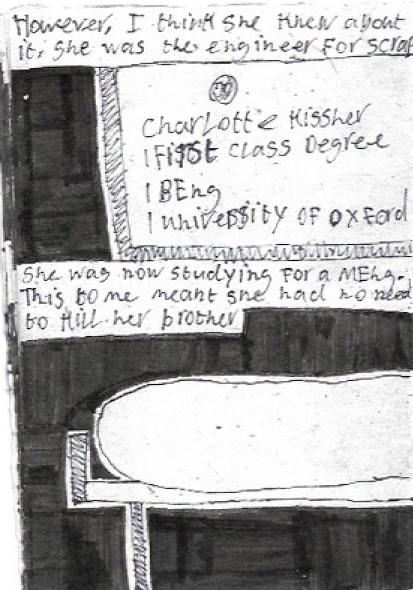 However, I think she knew about
it, she was the engineer for scrap
Charlotte Kissher
1 First class Degree
1 BEng
1 university of oxford
She was now studying for a MEng.
This to me meant she had no need
to kill her brother